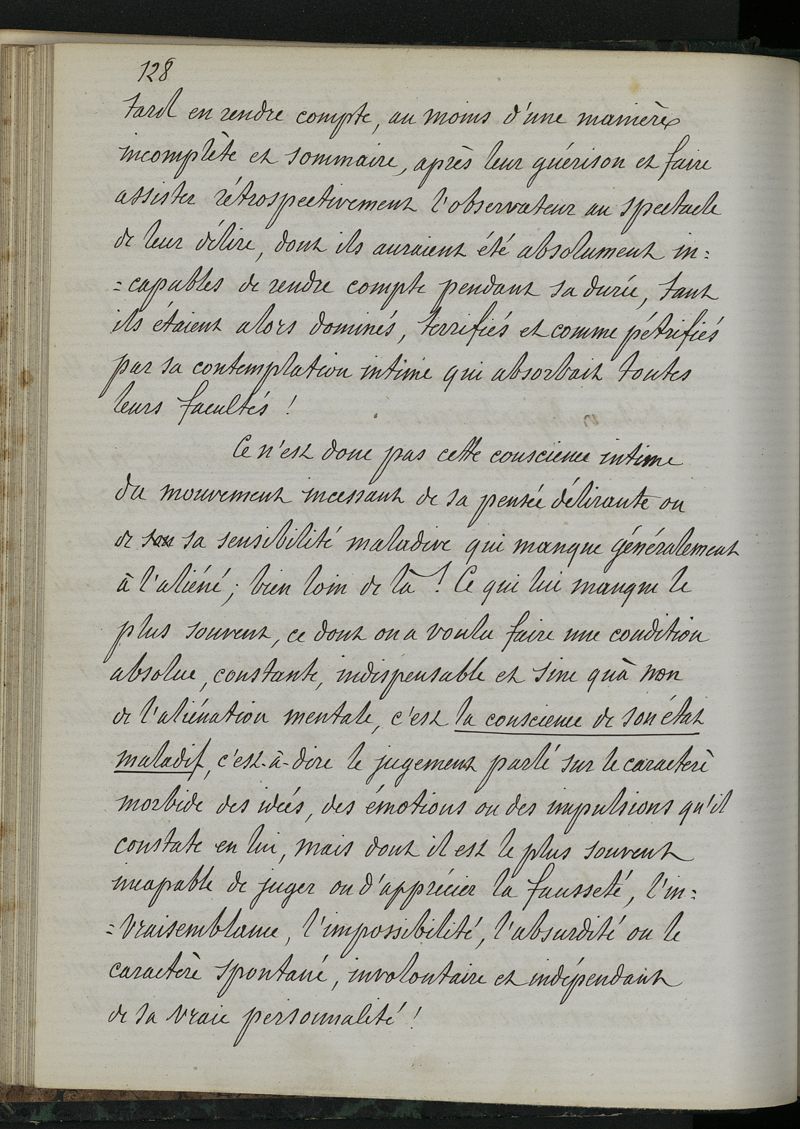 128
tard en rendre compte, au moins d'une manière
incomplète et sommaire, après leur guérison et faire
assister rétrospectivement l'observateur au spectacle
de leur délire, dont ils auraient été absolument in=
=capables de rendre compte pendant sa durée, tant
ils étaient alors dominés, terrifiés et comme pétrifiés
par sa contemplation intime qui absorbait toutes
leurs facultés !
Ce n'est donc pas cette conscience intime
du mouvement incessant de sa pensée délirante ou
de son sa sensibilité maladive qui manque généralement
à l'aliéné ; bien loin de là ! Ce qui lui manque le
plus souvent, ce dont on a voulu faire une condition
absolue, constante, indispensable et sine quà non
de l'aliénation mentale, c'est la conscience de son état
maladif, c'est-à-dire le jugement porté sur le caractère
morbide des idées, des émotions ou des impulsions qu'il
constate en lui, mais dont il est le plus souvent
incapable de juger ou d'apprécier la fausseté, l'in=
=vraisemblance, l'impossibilité, l'absurdité ou le
caractère spontané, involontaire et indépendant
de sa vraie personnalité !